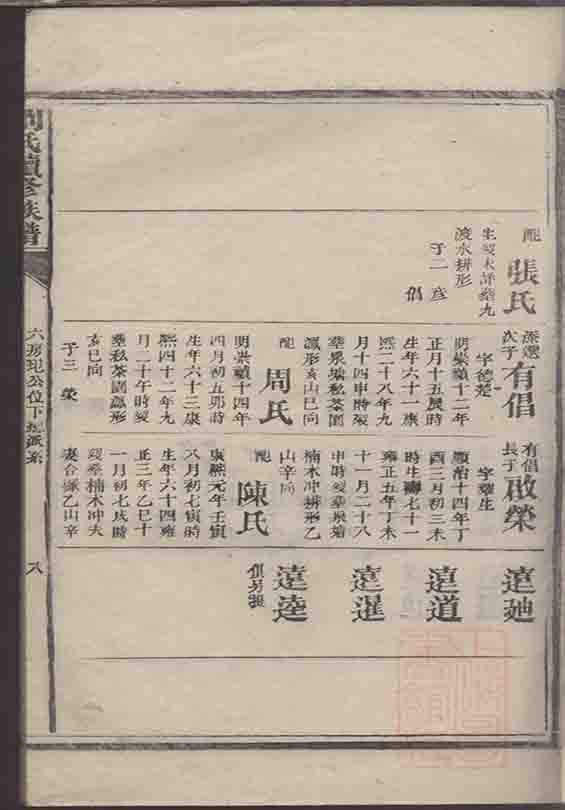 配
張氏
生歿未詳葬九
渡水耕形
子二 彥
倡
孫選
次子
有倡
字德楚
明崇禎十二年
正月十五辰時
生年六十一康
熙二十八年九
月十四申時歿
葬泉塘私茶園
瓢形亥山巳向
配
周氏
明崇禎十四年
四月初五卯時
生年六十三康
熙四十二年九
月二十午時歿
葬私茶園瓢形
亥巳向
子三 榮
有倡
長子
啟榮
字耀生
順治十四年丁
酉三月初三未
時生壽七十一
雍正五年丁未
十一月二十八
申時歿葬泉塘
楠木冲耕形乙
山辛向
配
陳氏
康熙元年壬寅
八月初七寅時
生年六十四雍
正三年乙巳十
一月初七戌時
歿葬楠木冲夫
妻合塚乙山辛
遠廸
遠道
遠暹
遠逵
俱另提
劉氏續修族譜
六房圯公位下總派系
八